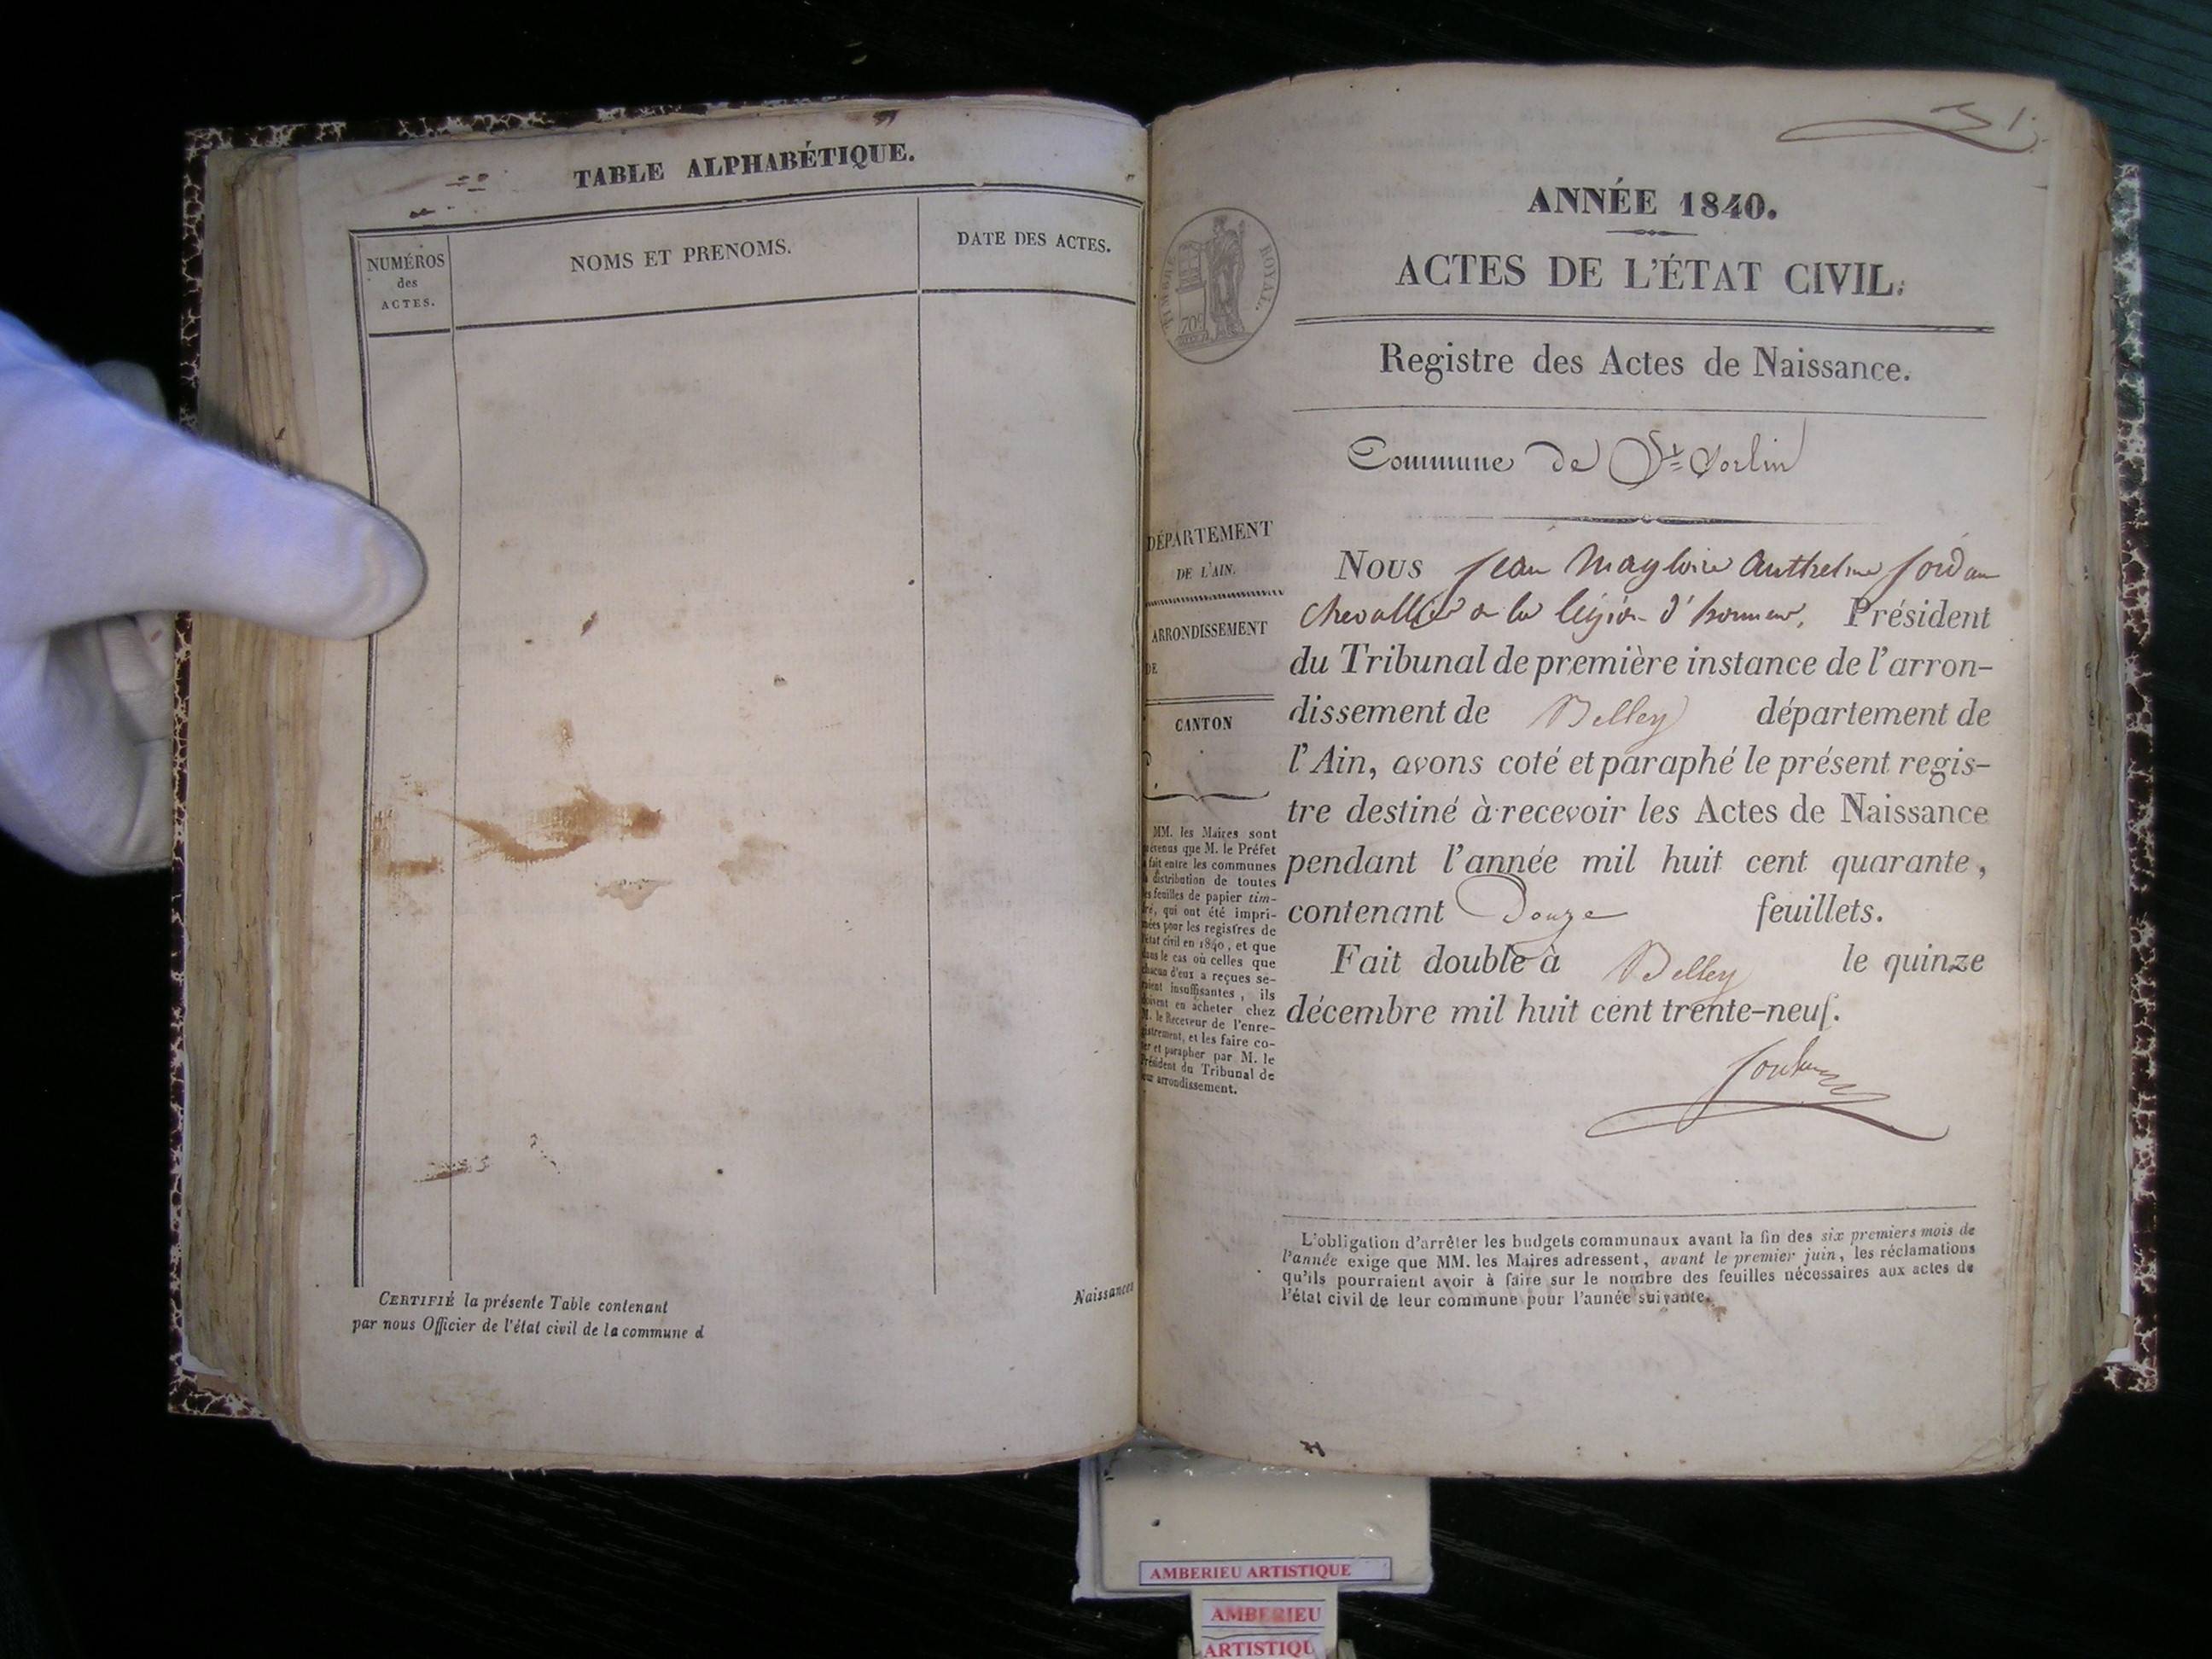 TABLE ALPHABÉTIQUE.
NUMÉROS
des
ACTES.
NOMS ET PRENOMS.
DATE DES ACTES.
CERTIFIÉ la présente Table contenant
Naissances
par nous Officier de l'état civil de la commune d
31.
ANNÉE 1840.
ACTES DE L'ÉTAT CIVIL.
TIMBRE ROYAL.
70c
Registre des Actes de Naissance.
Commune de St Sorlin
DÉPARTEMENT
DE L'AIN.
ARRONDISSEMENT
DE
CANTON
MM. les Maires sont
prévenus que M. le Préfet
a fait entre les communes
la distribution de toutes
les feuilles de papier tim-
bré, qui ont été impri-
mées pour les registres de
l'état civil en 1840, et que
dans le cas où celles que
chacun d'eux a reçues se-
raient insuffisantes, ils
doivent en acheter chez
M. le Receveur de l'enre-
gistrement, et les faire co-
ter et parapher par M. le
Président du Tribunal de
leur arrondissement.
Nous Jean Magloire Anthelme Jordan
Chevallier de la légion d'honneur, Président
du Tribunal de première instance de l'arron-
dissement de Belley département de
l'Ain, avons coté et paraphé le présent regis-
tre destiné à recevoir les Actes de Naissance
pendant l'année mil huit cent quarante,
contenant Douze feuillets.
Fait double à Belley le quinze
décembre mil huit cent trente-neuf.
Jordan
L'obligation d'arrêter les budgets communaux avant la fin des six premiers mois de
l'année exige que MM. les Maires adressent, avant le premier juin, les réclamations
qu'ils pourraient avoir à faire sur le nombre des feuilles nécessaires aux actes de
l'état civil de leur commune pour l'année suivante.
AMBERIEU ARTISTIQUE
AMBERIEU
ARTISTIQU